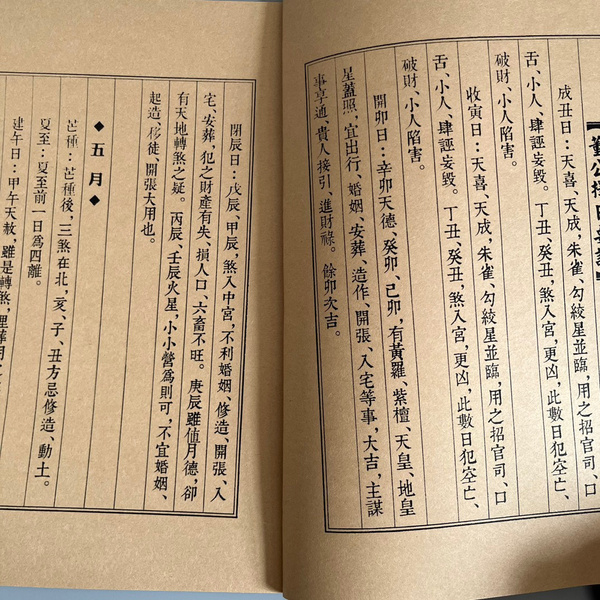 董公擇日要訣
成丑日：天喜、天成，朱雀、勾絞星並臨，用之招官司、口
舌、小人、肆誣妄毀。丁丑、癸丑，煞入宮，更凶，此數日犯空亡、
破財、小人陷害。
收寅日：天喜、天成，朱雀、勾絞星並臨，用之招官司、口
舌、小人、肆誣妄毀。丁丑、癸丑，煞入宮，更凶，此數日犯空亡、
破財、小人陷害。
開卯日：辛卯天德、癸卯、己卯，有黃羅、紫檀、天皇、地皇
星蓋照，宜出行、婚姻、安葬、造作、開張、入宅等事，大吉，主謀
事享通，貴人接引、進財祿。餘卯次吉。
閉辰日：戊辰、甲辰，煞入中宮，不利婚姻、修造、開張、入
宅、安葬，犯之財產有失、損人口、六畜不旺。庚辰雖值月德，卻
有天地轉煞之疑。丙辰、壬辰火星，小小營為則可，不宜婚姻、
起造、移徒、開張大用也。
◆五月◆
芒種：芒種後，三煞在北，亥、子、丑方忌修造、動土。
夏至：夏至前一日為四離。
建午日：甲午天赦，雖是轉煞，埋葬用之